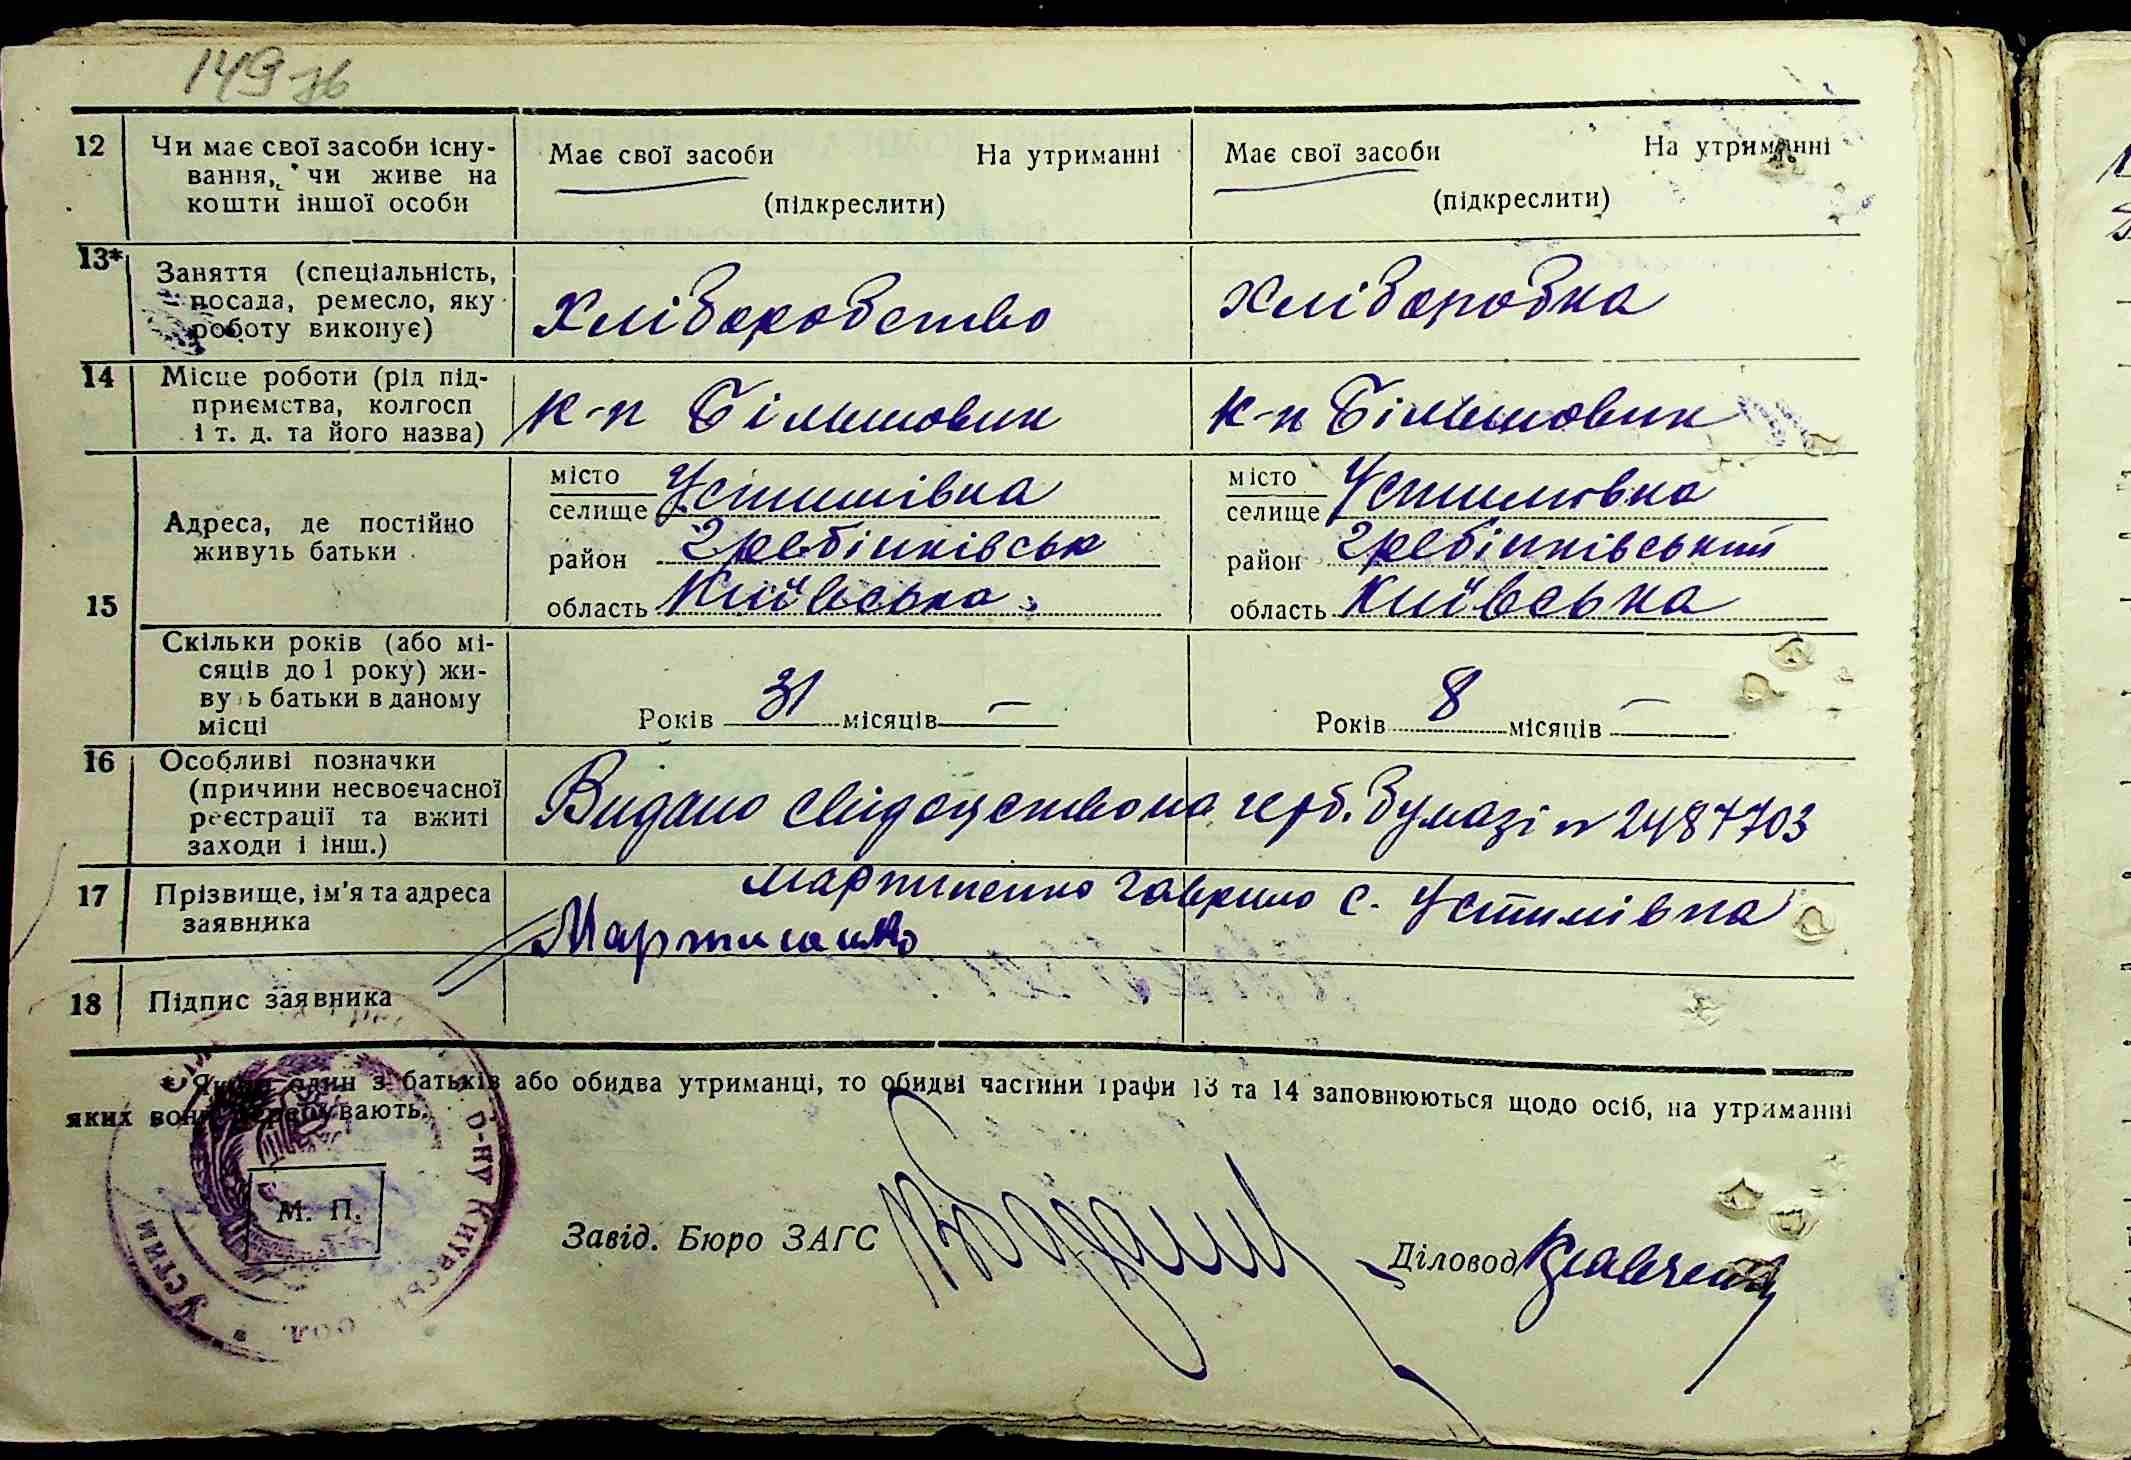 149 зв
12 Чи має свої засоби існу-
вання, чи живе на
кошти іншої особи
Має свої засоби На утриманні
(підкреслити)
Має свої засоби На утриманні
(підкреслити)
13* Заняття (спеціальність,
посада, ремесло, яку
роботу виконує)
Хліборобство
Хлібаробка
14 Місце роботи (рід під-
приємства, колгосп
і т. д. та його назва)
к-п Більшовик
к-п Більшовик
15 Адреса, де постійно
живуть батьки
місто
селище Устимівка
район Гребінківськ
область Київська
місто
селище Устимовка
район Гребінківський
область Київська
Скільки років (або мі-
сяців до 1 року) жи-
вуть батьки в даному
місці
Років 31 місяців —
Років 8 місяців —
16 Особливі позначки
(причини несвоєчасної
реєстрації та вжиті
заходи і інш.)
Видано свідоцтво на герб. бумазі № 2487703
17 Прізвище, ім'я та адреса
заявника
Мартиненко Гаврило с. Устимівка
Мартиненко
18 Підпис заявника
* Якщо один з батьків або обидва утриманці, то обидві частини графи 13 та 14 заповнюються щодо осіб, на утриманні
яких вони перебувають.
М. П.
Устим
р-ну Київсь
Завід. Бюро ЗАГС
Діловод Кравченко